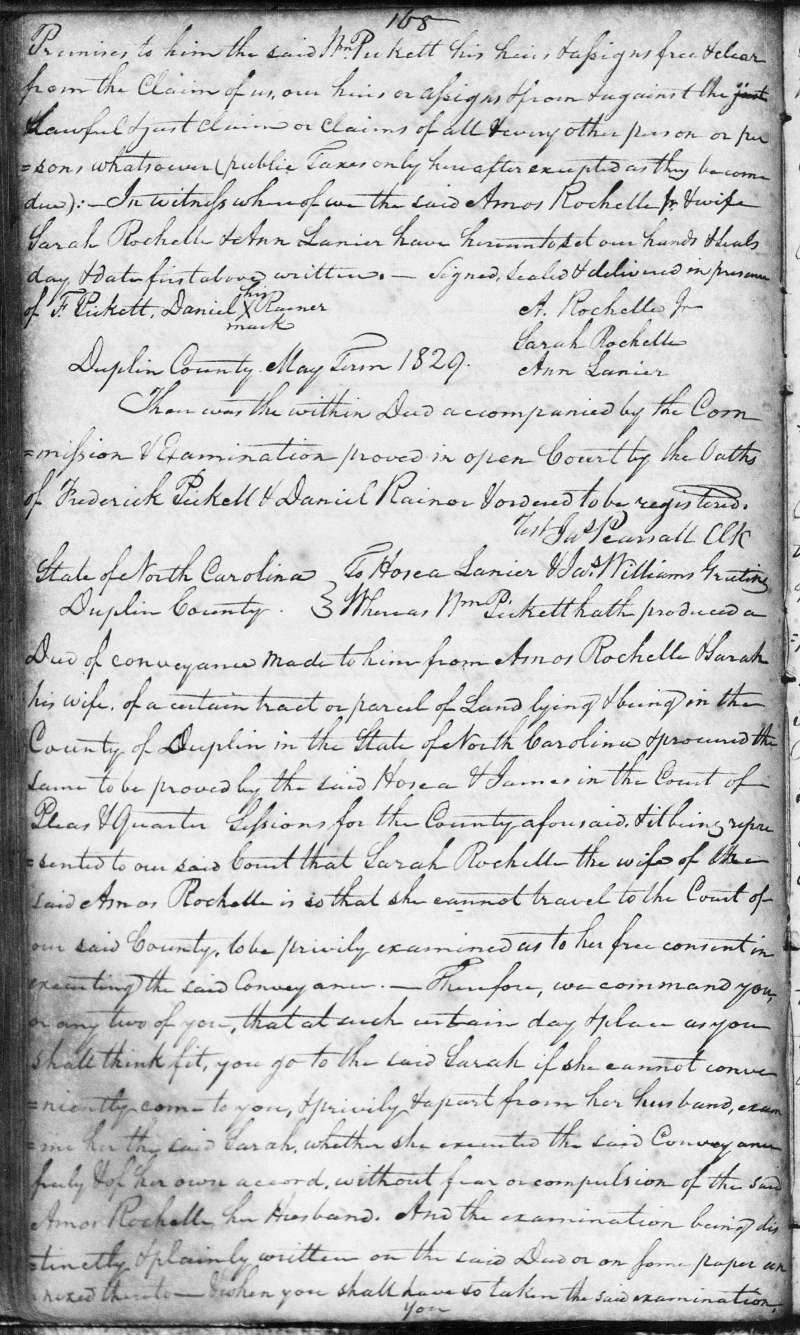 168
Premises to him the said Wm. Pickett his heirs & assigns free & clear
from the Claim of us, our heirs or assigns & from & against the just
Lawful & just claim or claims of all & every other person or per
=sons whatsoever (public Taxes only hereafter excepted as they become
due):— In witness whereof we the said Amos Rochelle Jr. & wife
Sarah Rochelle & Ann Lanier have hereunto set our hands & seals
day & date first above written.— Signed, sealed & delivered in presence
of F. Pickett, Daniel his X mark Rainer A. Rochelle Jr
Sarah Rochelle
Duplin County May Term 1829. Ann Lanier
Then was the within Deed accompanied by the Com
=mission & Examination proved in open Court by the Oaths
of Frederick Pickett & Daniel Rainer & ordered to be registered.
Test Jas. Pearsall Clk
State of North Carolina To Hosea Lanier & Jas. Williams Greeting
Duplin County. } Whereas Wm Pickett hath produced a
Deed of conveyance made to him from Amos Rochelle & Sarah
his wife, of a certain tract or parcel of Land lying & being in the
County of Duplin in the State of North Carolina & procured the
same to be proved by the said Hosea & James in the Court of
Pleas & Quarter Sessions for the County aforesaid, & it being repre
=sented to our said Court that Sarah Rochelle the wife of the
said Amos Rochelle is so that she cannot travel to the Court of
our said County, to be privily examined as to her free consent in
executing the said Conveyance.— Therefore, we command you,
or any two of you, that at such certain day & place as you
shall think fit, you go to the said Sarah if she cannot conve
=niently come to you, & privily & apart from her husband, exam
=ine her the said Sarah, whether she executed the said Conveyance
freely & of her own accord, without fear or compulsion of the said
Amos Rochelle her Husband. And the examination being dis
=tinctly & plainly written on the said Deed or on some paper an
nexed thereto — & when you shall have so taken the said examination,
you